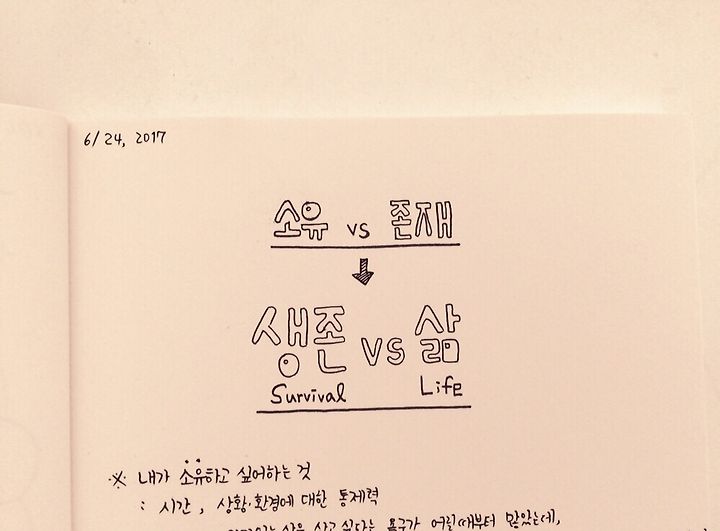 6/24, 2017
소유 vs 존재
생존 vs 삶
Survival Life
※ 내가 소유하고 싶어하는 것
: 시간, 상황·환경에 대한 통제력
삶을 살고 싶다는 욕구가 어릴때부터 많았는데,